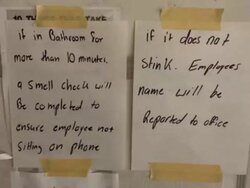 10 THINGS THAT TAKE
if in Bathroom for
more than 10 minutes.
a smell check will
Be completed to
ensure employee not
sitting on phone
if it does not
Stink. Employees
name will be
Reported to office